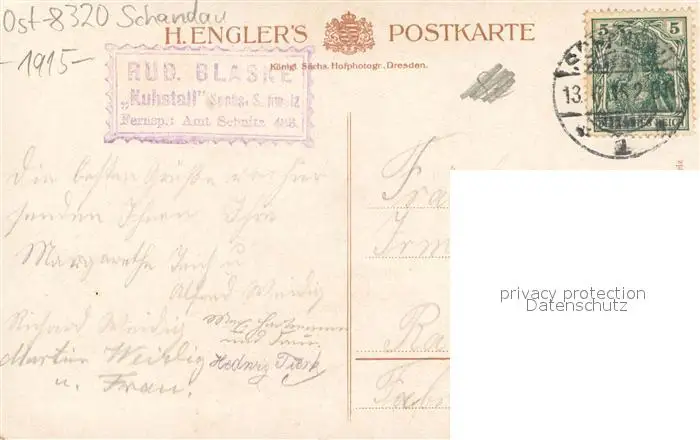 Ost-8320 Schandau
-1915-
H. ENGLER'S POSTKARTE
Königl. Sächs. Hofphotogr., Dresden.
RUD. BLASKE
„Kuhstall" Saechs. Schweiz
Fernsp.: Amt Sebnitz
5 5
13.
Die besten Grüße von hier
senden Ihnen Ihre
Margarethe u
Alfred Weidig
Richard Weidig
und Frau.
Martin Weidig Hedwig
u. Frau.
Fra
Irm
Ra
Fab
privacy protection
Datenschutz